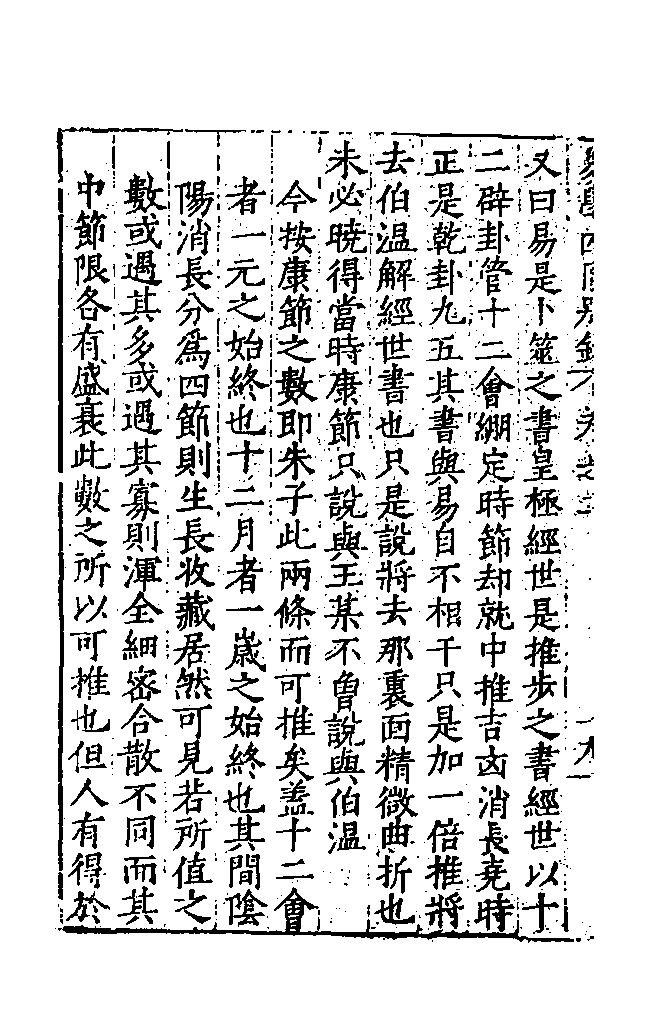 又曰易是卜筮之書皇極經世是推步之書經世以十
二辟卦管十二會綳定時節却就中推吉凶消長堯時
正是乾卦九五其書與易自不相干只是加一倍推將
去伯温解經世書也只是說將去那裏面精微曲折也
未必曉得當時康節只說與王某不曾說與伯温
今按康節之數即朱子此兩條而可推矣盖十二會
者一元之始終也十二月者一歳之始終也其間隂
陽消長分爲四節則生長收藏居然可見若所值之
數或遇其多或遇其寡則渾全細密合散不同而其
中節限各有盛衰此數之所以可推也但人有得於